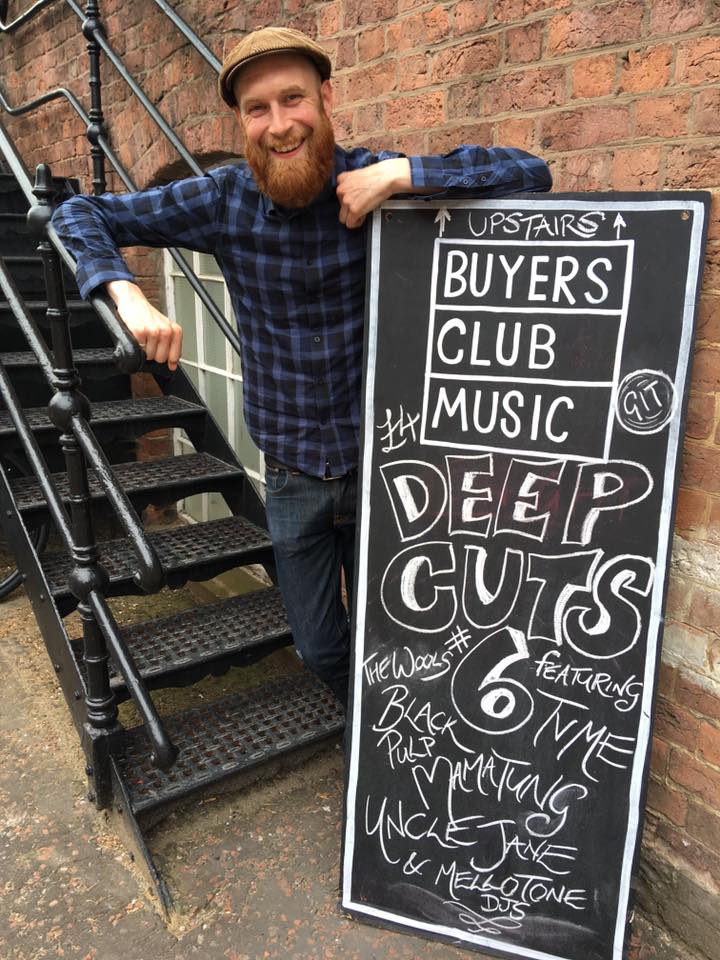 UPSTAIRS
BUYERS
CLUB
MUSIC
GIT
£4
DEEP
CUTS
#6
FEATURING
THE WOOLS
TVME
BLACK
PULP
MAMATUNG
UNCLE JANE
& MELLOTONE
DJS